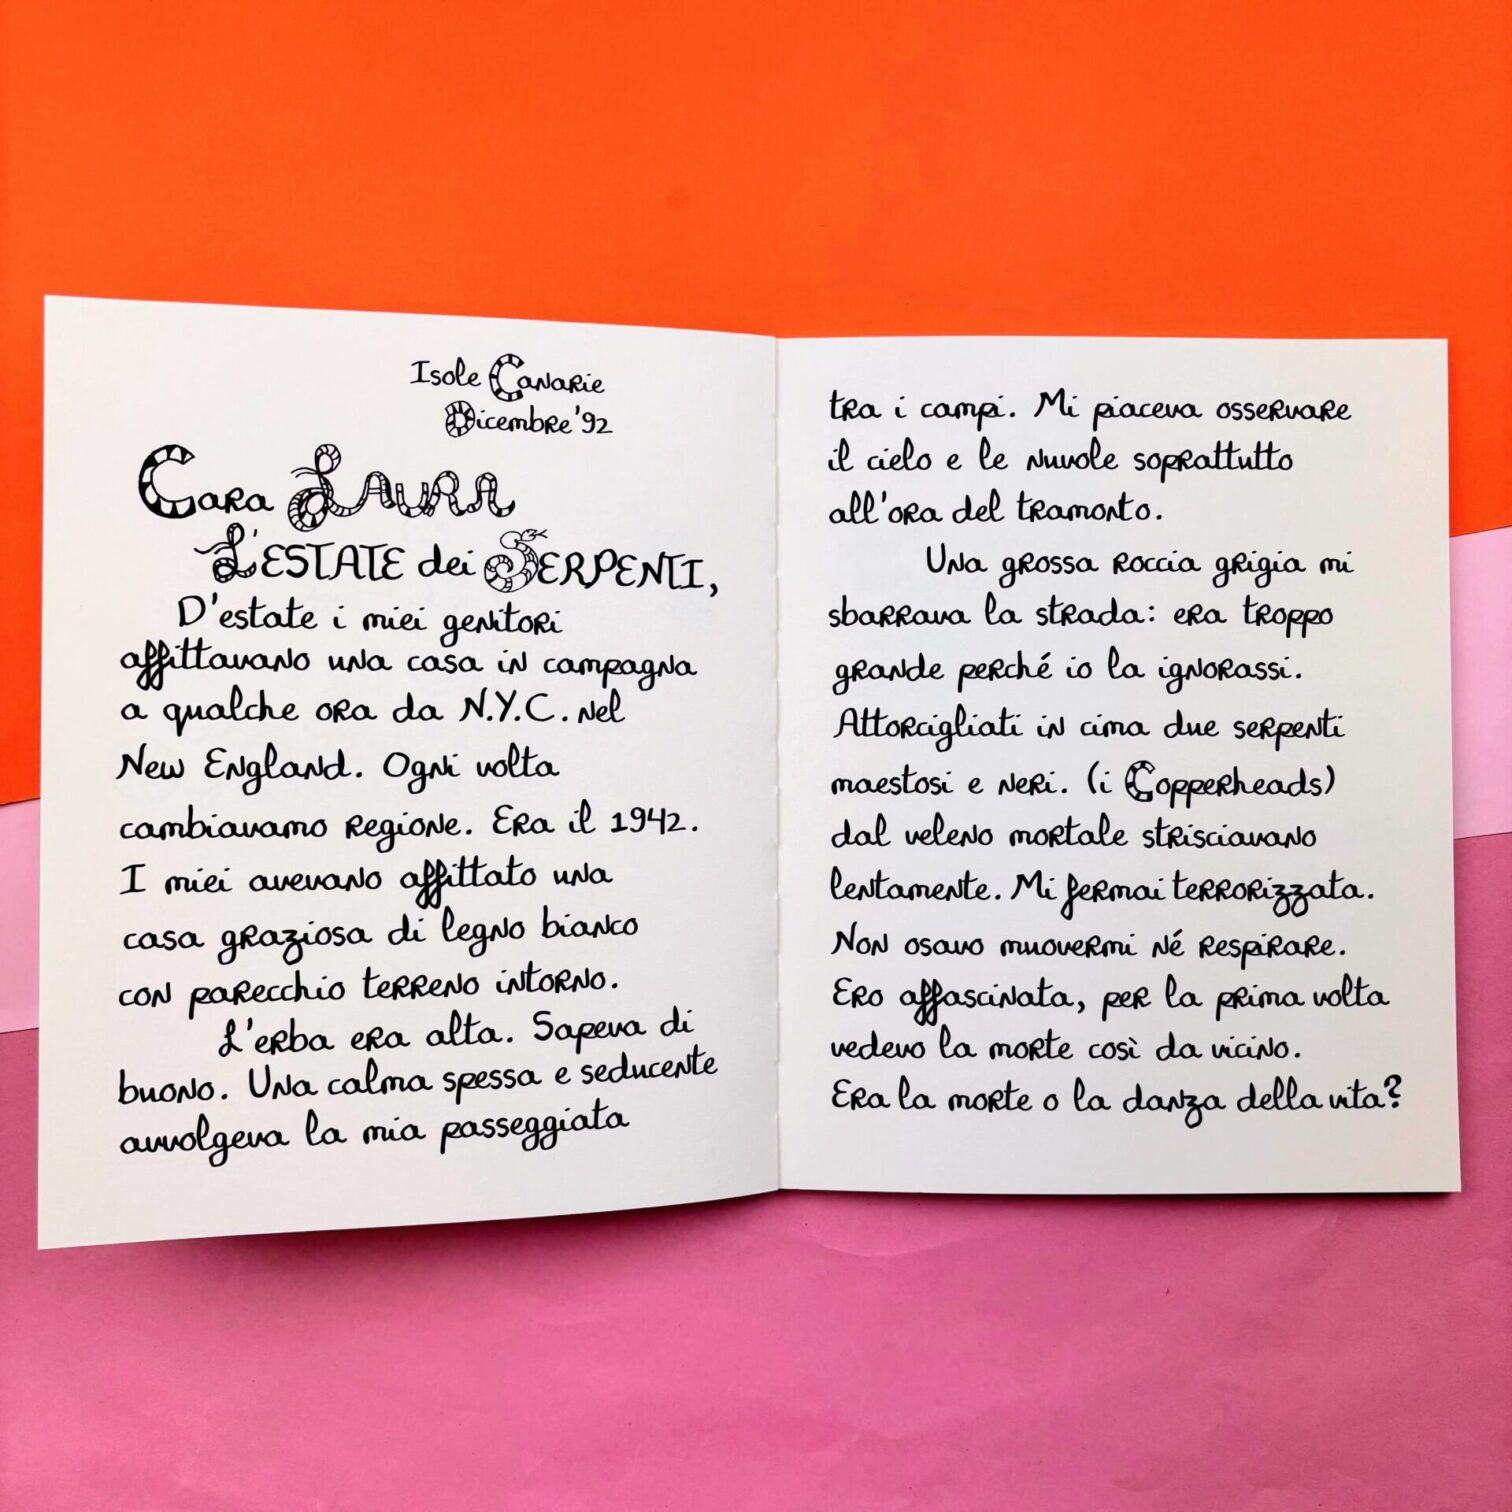 Isole Canarie
Dicembre '92
Cara Laura
L'ESTATE dei SERPENTI,
D'estate i miei genitori
affittavano una casa in campagna
a qualche ora da N.Y.C. nel
New England. Ogni volta
cambiavamo regione. Era il 1942.
I miei avevano affittato una
casa graziosa di legno bianco
con parecchio terreno intorno.
L'erba era alta. Sapeva di
buono. Una calma spessa e seducente
avvolgeva la mia passeggiata
tra i campi. Mi piaceva osservare
il cielo e le nuvole soprattutto
all'ora del tramonto.
Una grossa roccia grigia mi
sbarrava la strada: era troppo
grande perché io la ignorassi.
Attorcigliati in cima due serpenti
maestosi e neri. (i Copperheads)
dal veleno mortale strisciavano
lentamente. Mi fermai terrorizzata.
Non osavo muovermi né respirare.
Ero affascinata, per la prima volta
vedevo la morte così da vicino.
Era la morte o la danza della vita?